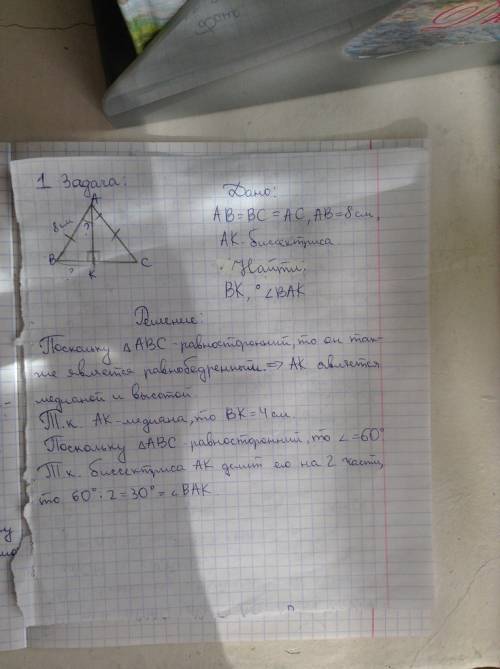 фону
1 Задача:
A
8 см
?
B
K
C
?
Дано:
AB=BC=AC, AB=8 см,
AK-биссектриса
Найти:
BK, ° ∠BAK
Решение:
Поскольку △ABC-равносторонний, то он так-
же является равнобедренным. ⇒ AK является
медианой и высотой.
Т.к. AK-медиана, то BK=4 см.
Поскольку △ABC-равносторонний, то ∠=60°
Т.к. биссектриса AK делит его на 2 части,
то 60°:2=30°=∠BAK